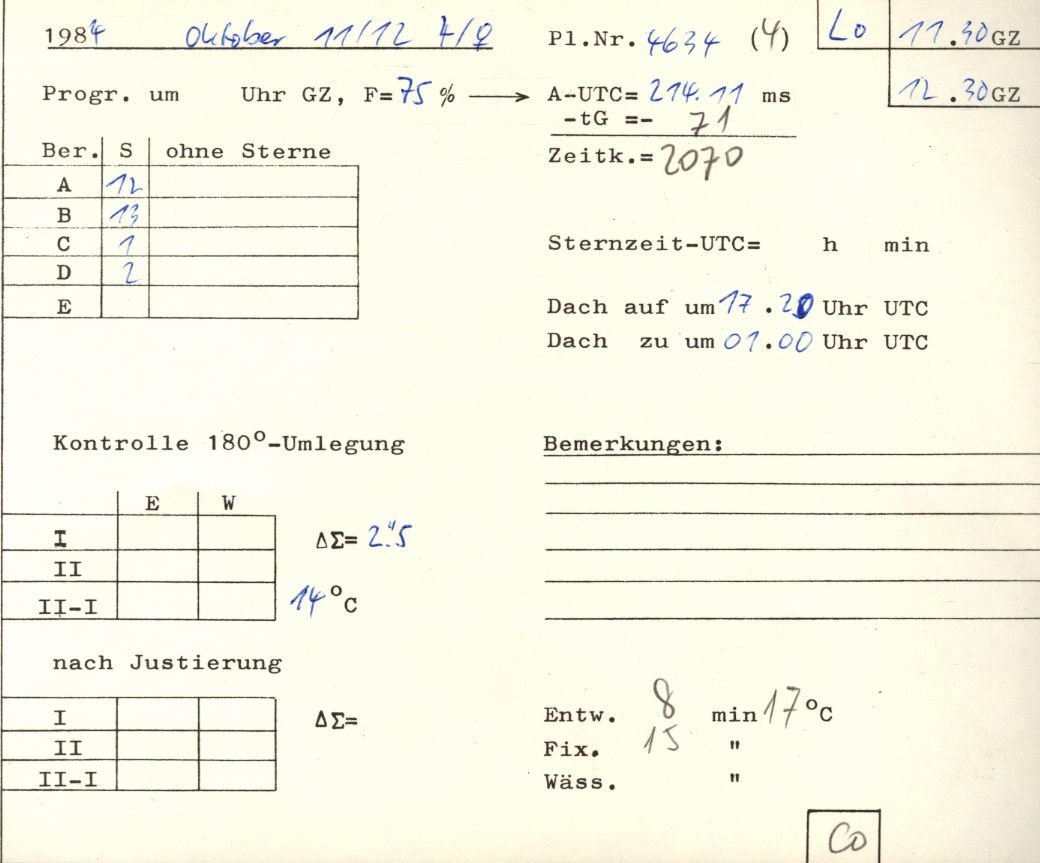 1984 Oktober 11/12 ♃/♀ Pl.Nr. 4634 (4) Lo 11.30 GZ
Progr. um Uhr GZ, F=75 % → A-UTC= 214.11 ms 12.30 GZ
-tG =- 71
Ber. S ohne Sterne Zeitk.= 2070
A 12
B 13
C 1 Sternzeit-UTC= h min
D 2
E Dach auf um 17.20 Uhr UTC
Dach zu um 01.00 Uhr UTC
Kontrolle 180°-Umlegung Bemerkungen:
E W
I ΔΣ= 2."5
II
II-I 14 °C
nach Justierung
I ΔΣ= Entw. 8 min 17 °C
II Fix. 15 "
II-I Wäss. "
Co